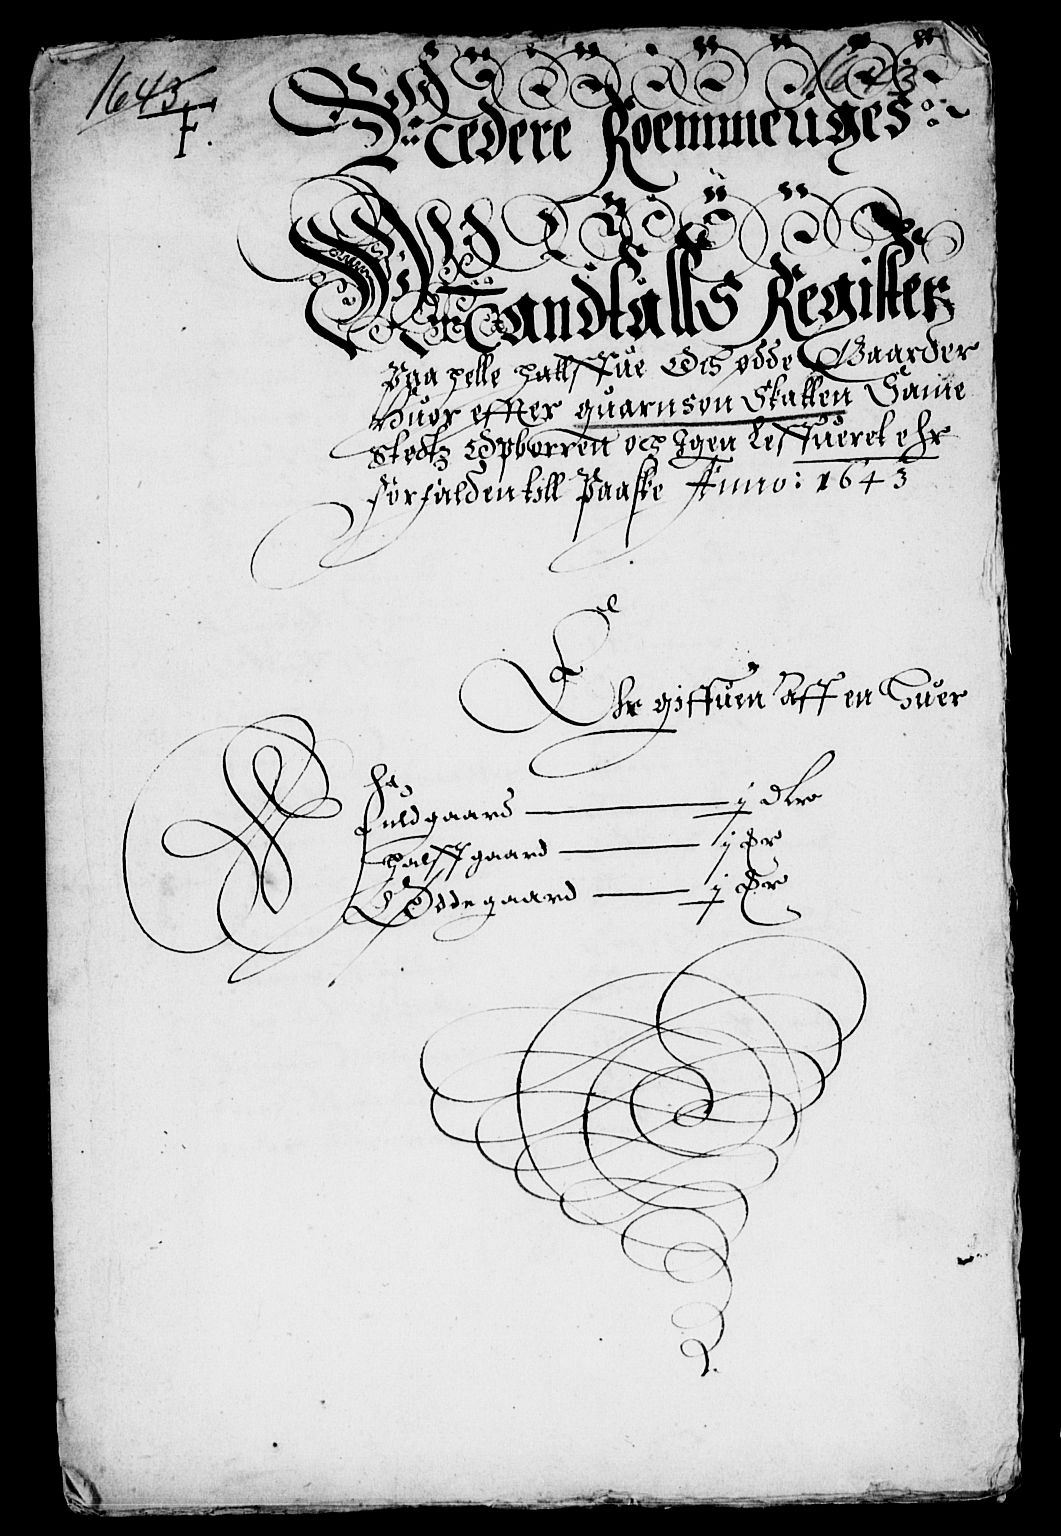 1643
1643
F.
Nedere Roemmeriges
Mandtalls Register
Paa helle halfftue Och ødde Gaarder
Huor effter guarnson Skatten Samme
Stedtz Opborren och Igen Leffúeret ehr
forfalden till Paaske Anno: 1643
Ehr giffuen aff en huer
Fuldgaard — ij dlr
halffgaard — j dr
Ødde gaard — j dr